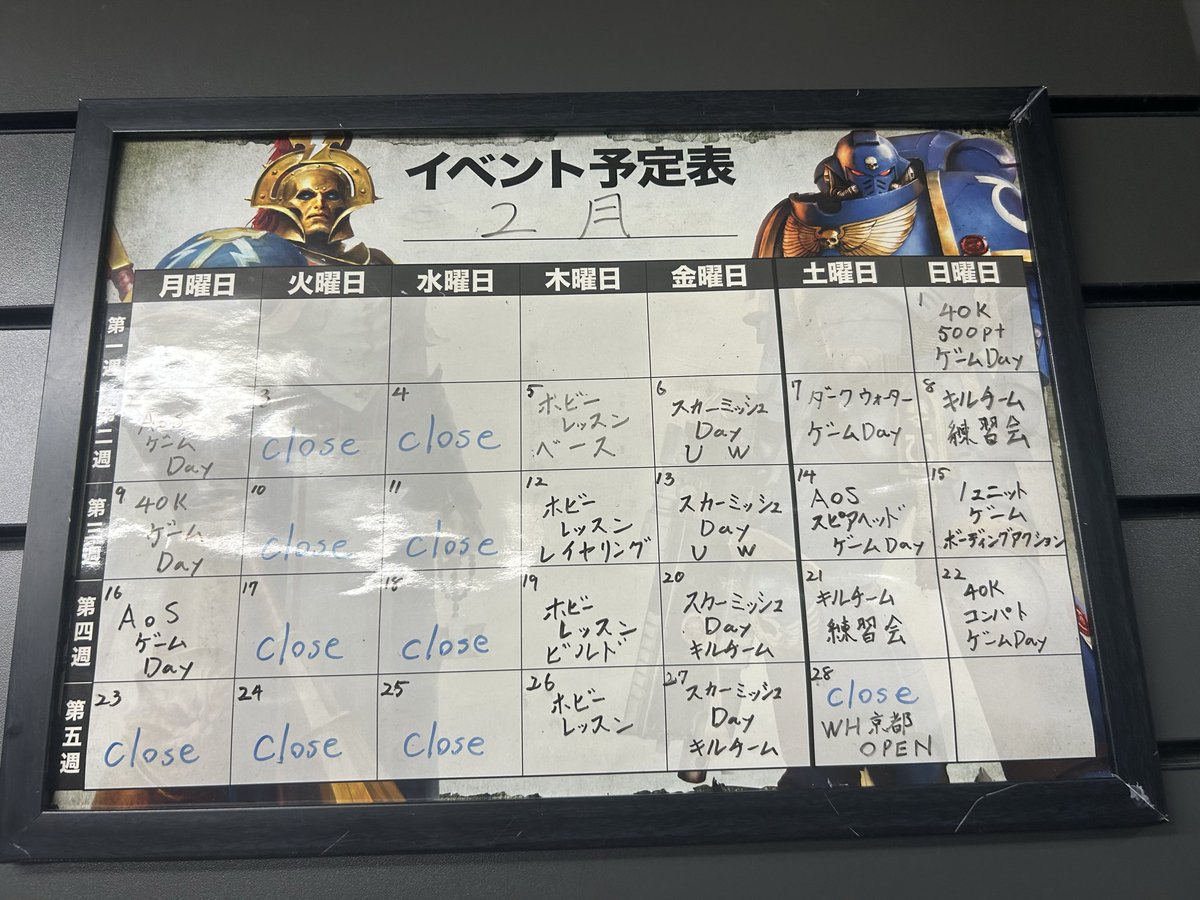 イベント予定表
2月
月曜日 火曜日 水曜日 木曜日 金曜日 土曜日 日曜日
第一週
1
40K
500pt
ゲームDay
第二週
ゲーム
Day
3
close
4
close
5
ホビー
レッスン
ベース
6
スカーミッシュ
Day
U W
7
ダークウォーター
ゲームDay
8
キルチーム
練習会
第三週
9
40K
ゲーム
Day
10
close
11
close
12
ホビー
レッスン
レイヤリング
13
スカーミッシュ
Day
U W
14
AoS
スピアヘッド
ゲームDay
15
1ユニット
ゲーム
ボーディングアクション
第四週
16
AoS
ゲーム
Day
17
close
18
close
19
ホビー
レッスン
ビルド
20
スカーミッシュ
Day
キルチーム
21
キルチーム
練習会
22
40K
コンパト
ゲームDay
第五週
23
close
24
close
25
close
26
ホビー
レッスン
27
スカーミッシュ
Day
キルチーム
28
close
WH京都
OPEN